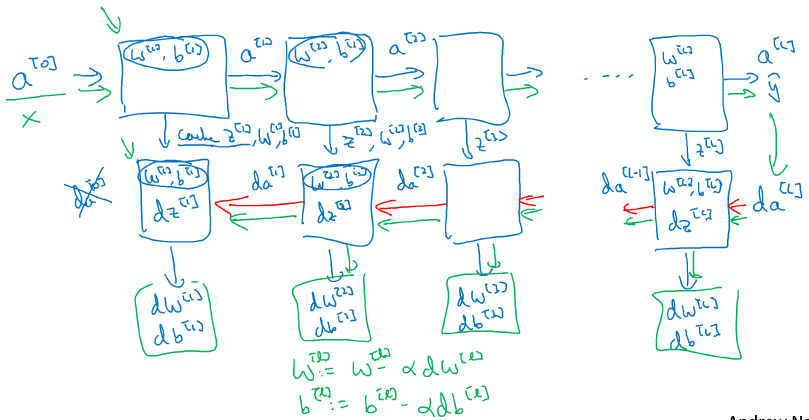 a^[0]
x
w^[1], b^[1]
a^[1]
w^[2], b^[2]
a^[2]
. . . .
w^[L]
b^[L]
a^[L]
ŷ
cache z^[1], w^[1], b^[1]
z^[2], w^[2], b^[2]
z^[3]
z^[L]
da^[0]
w^[1], b^[1]
dz^[1]
da^[1]
w^[2], b^[2]
dz^[2]
da^[2]
da^[L-1]
w^[L], b^[L]
dz^[L]
da^[L]
dw^[1]
db^[1]
dw^[2]
db^[2]
dw^[3]
db^[3]
dw^[L]
db^[L]
w^[l] := w^[l] - αdw^[l]
b^[l] := b^[l] - αdb^[l]